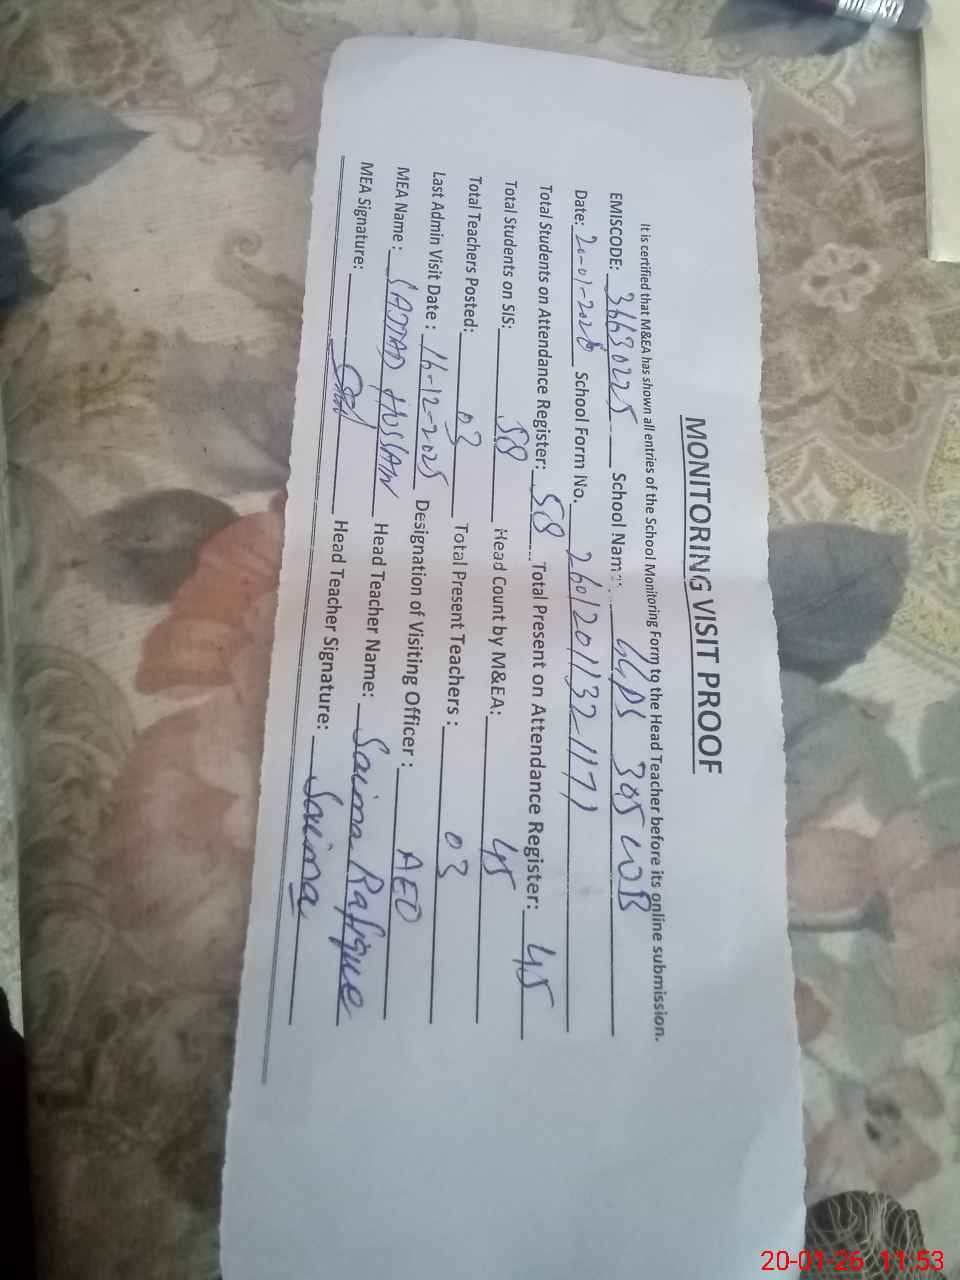 MONITORING VISIT PROOF
It is certified that M&EA has shown all entries of the School Monitoring Form to the Head Teacher before its online submission.
EMISCODE: 36630225 School Name: GGPS 305 WB
Date: 20-01-2026 School Form No. 2601201132-1171
Total Students on Attendance Register: 58 Total Present on Attendance Register: 45
Total Students on SIS: 58 Head Count by M&EA: 45
Total Teachers Posted: 03 Total Present Teachers : 03
Last Admin Visit Date : 16-12-2025 Designation of Visiting Officer : AEO
MEA Name : SAJJAD HUSSAIN Head Teacher Name: Saima Rafique
MEA Signature: Head Teacher Signature: Saima
20-01-26 11:53